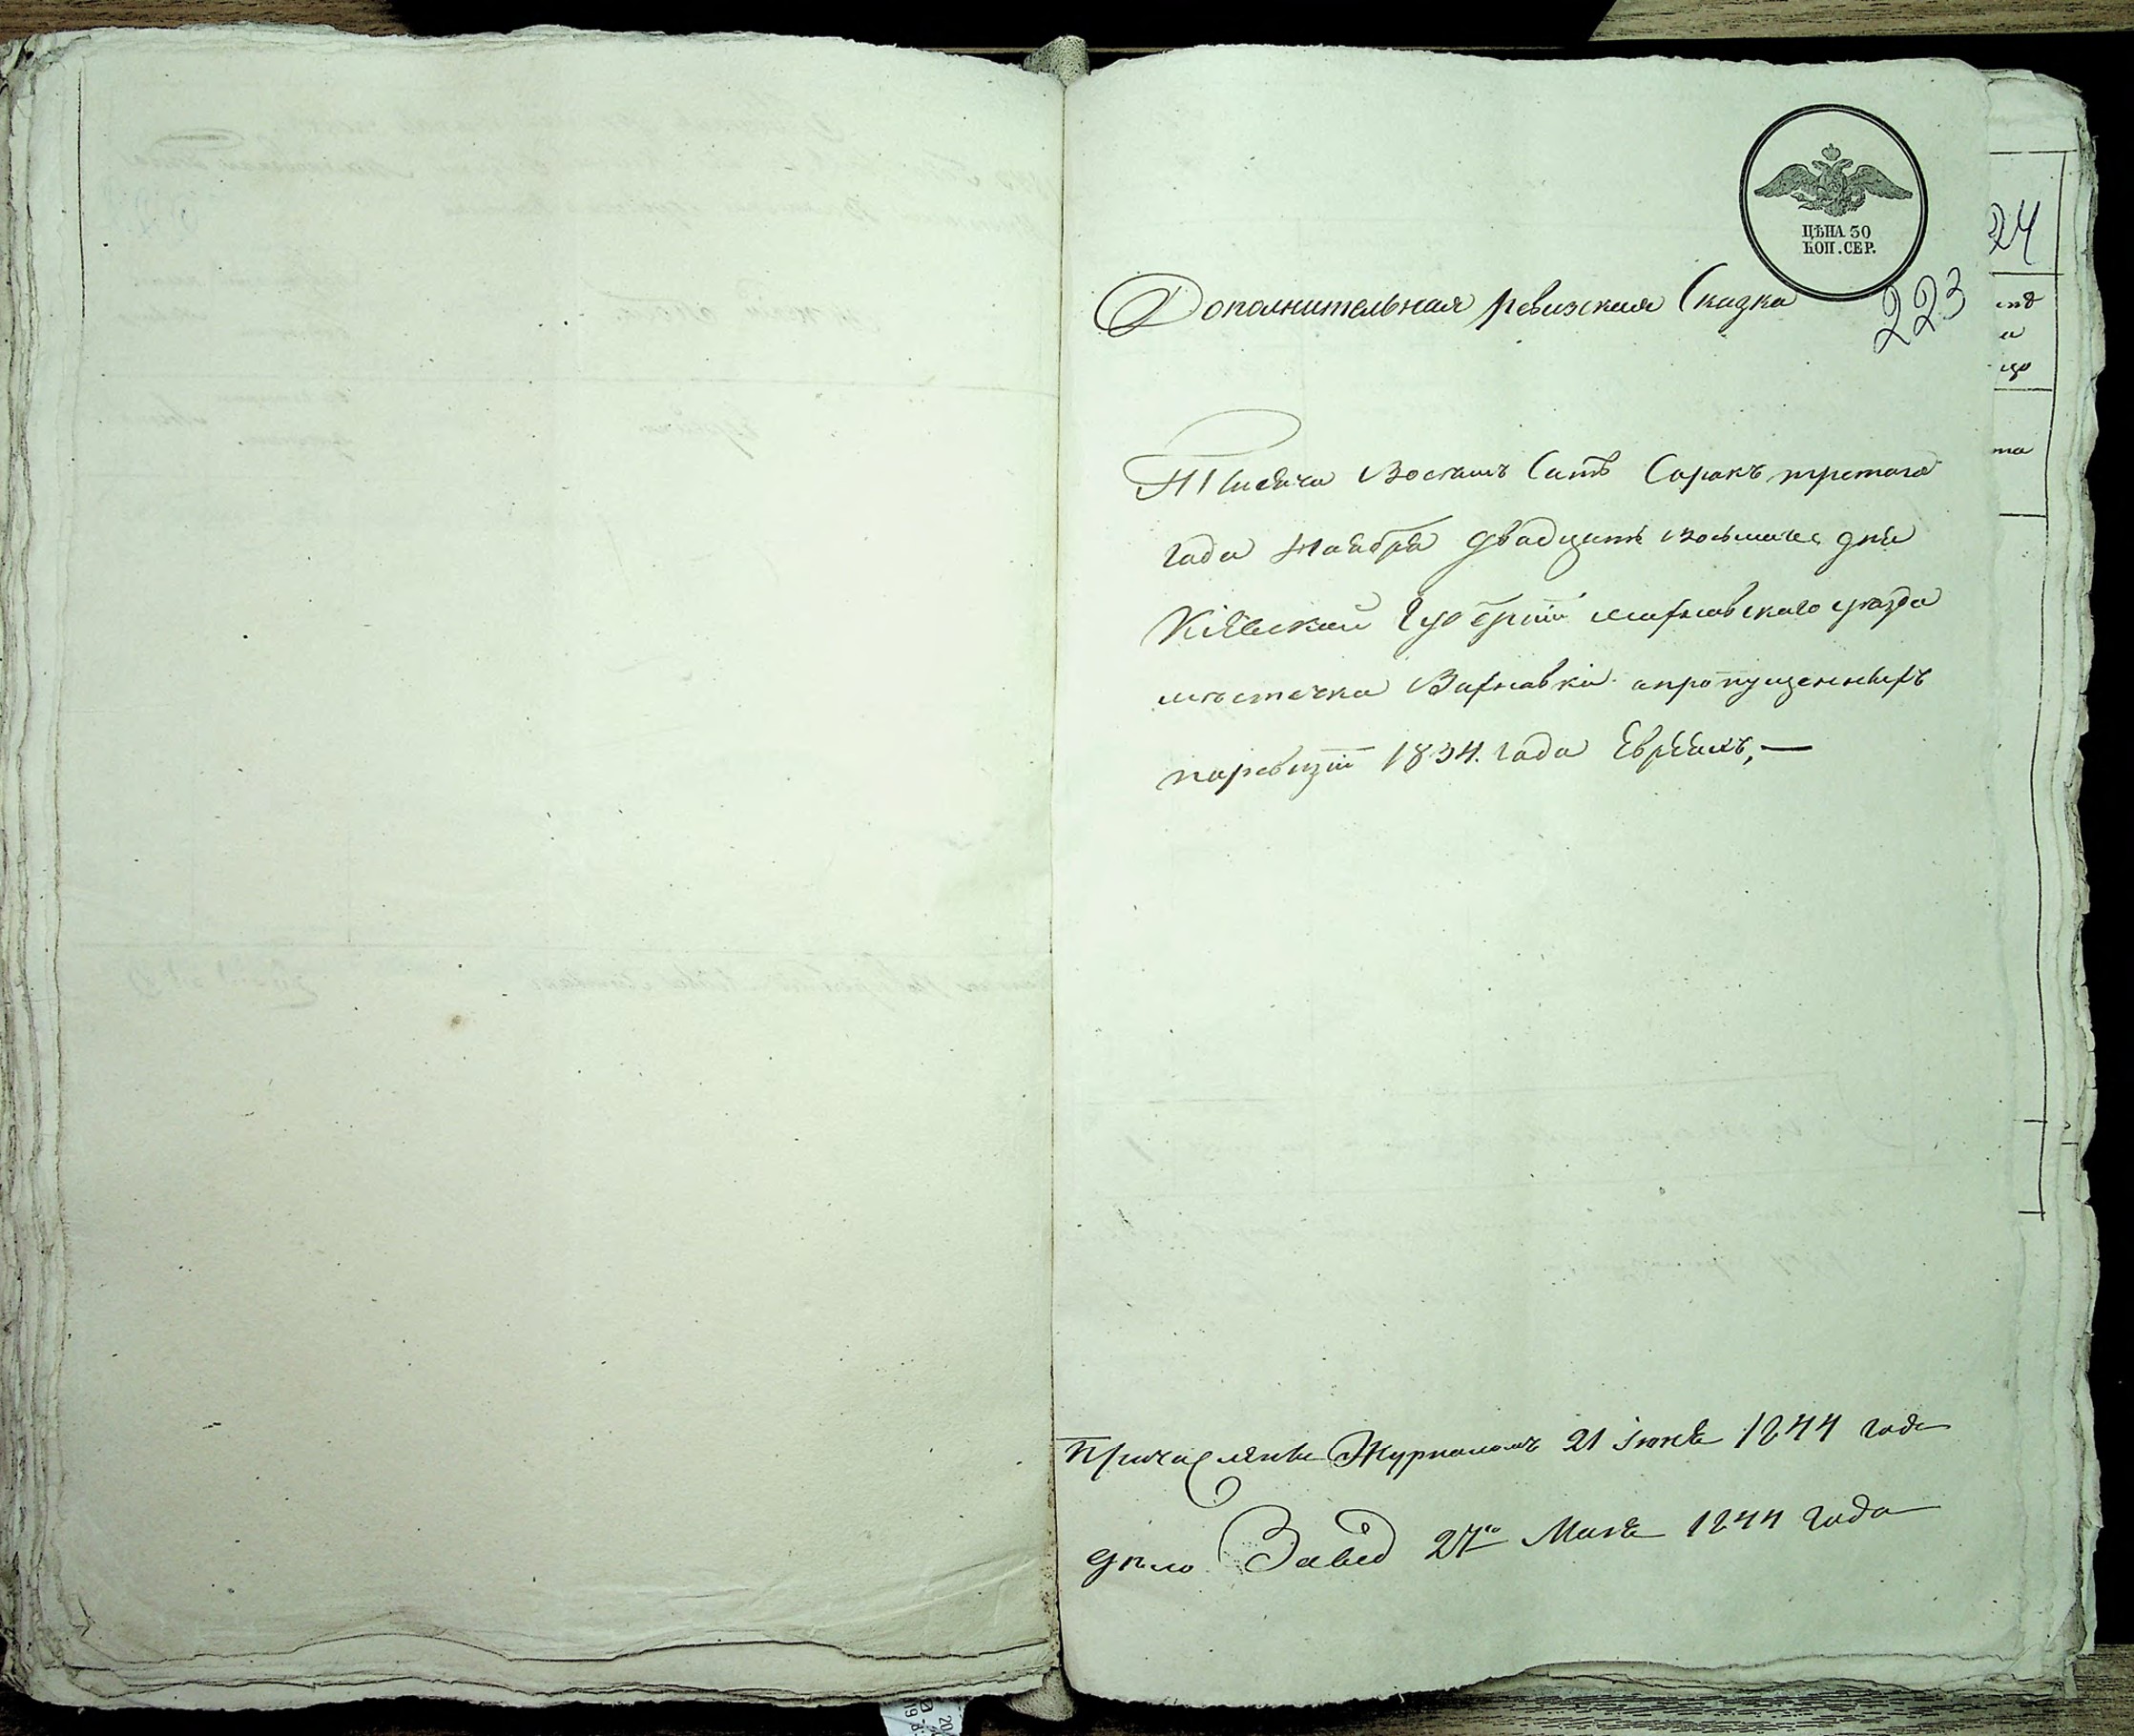 ЦѢНА 30
КОП. СЕР.
24
223
Дополнительная ревизская Скаска
Тысяча Восемь Сотъ Сорокъ третаго
Года Ноября двадцать восьмаго дня
Кіевской Губерніи махновскаго уезда
мѣстечка Вахновки опропущенныхъ
поревизіи 1834. года Евреяхъ, —
Причислены Журналомъ 21 іюня 1844 года
дѣло 27го Мая 1844 года